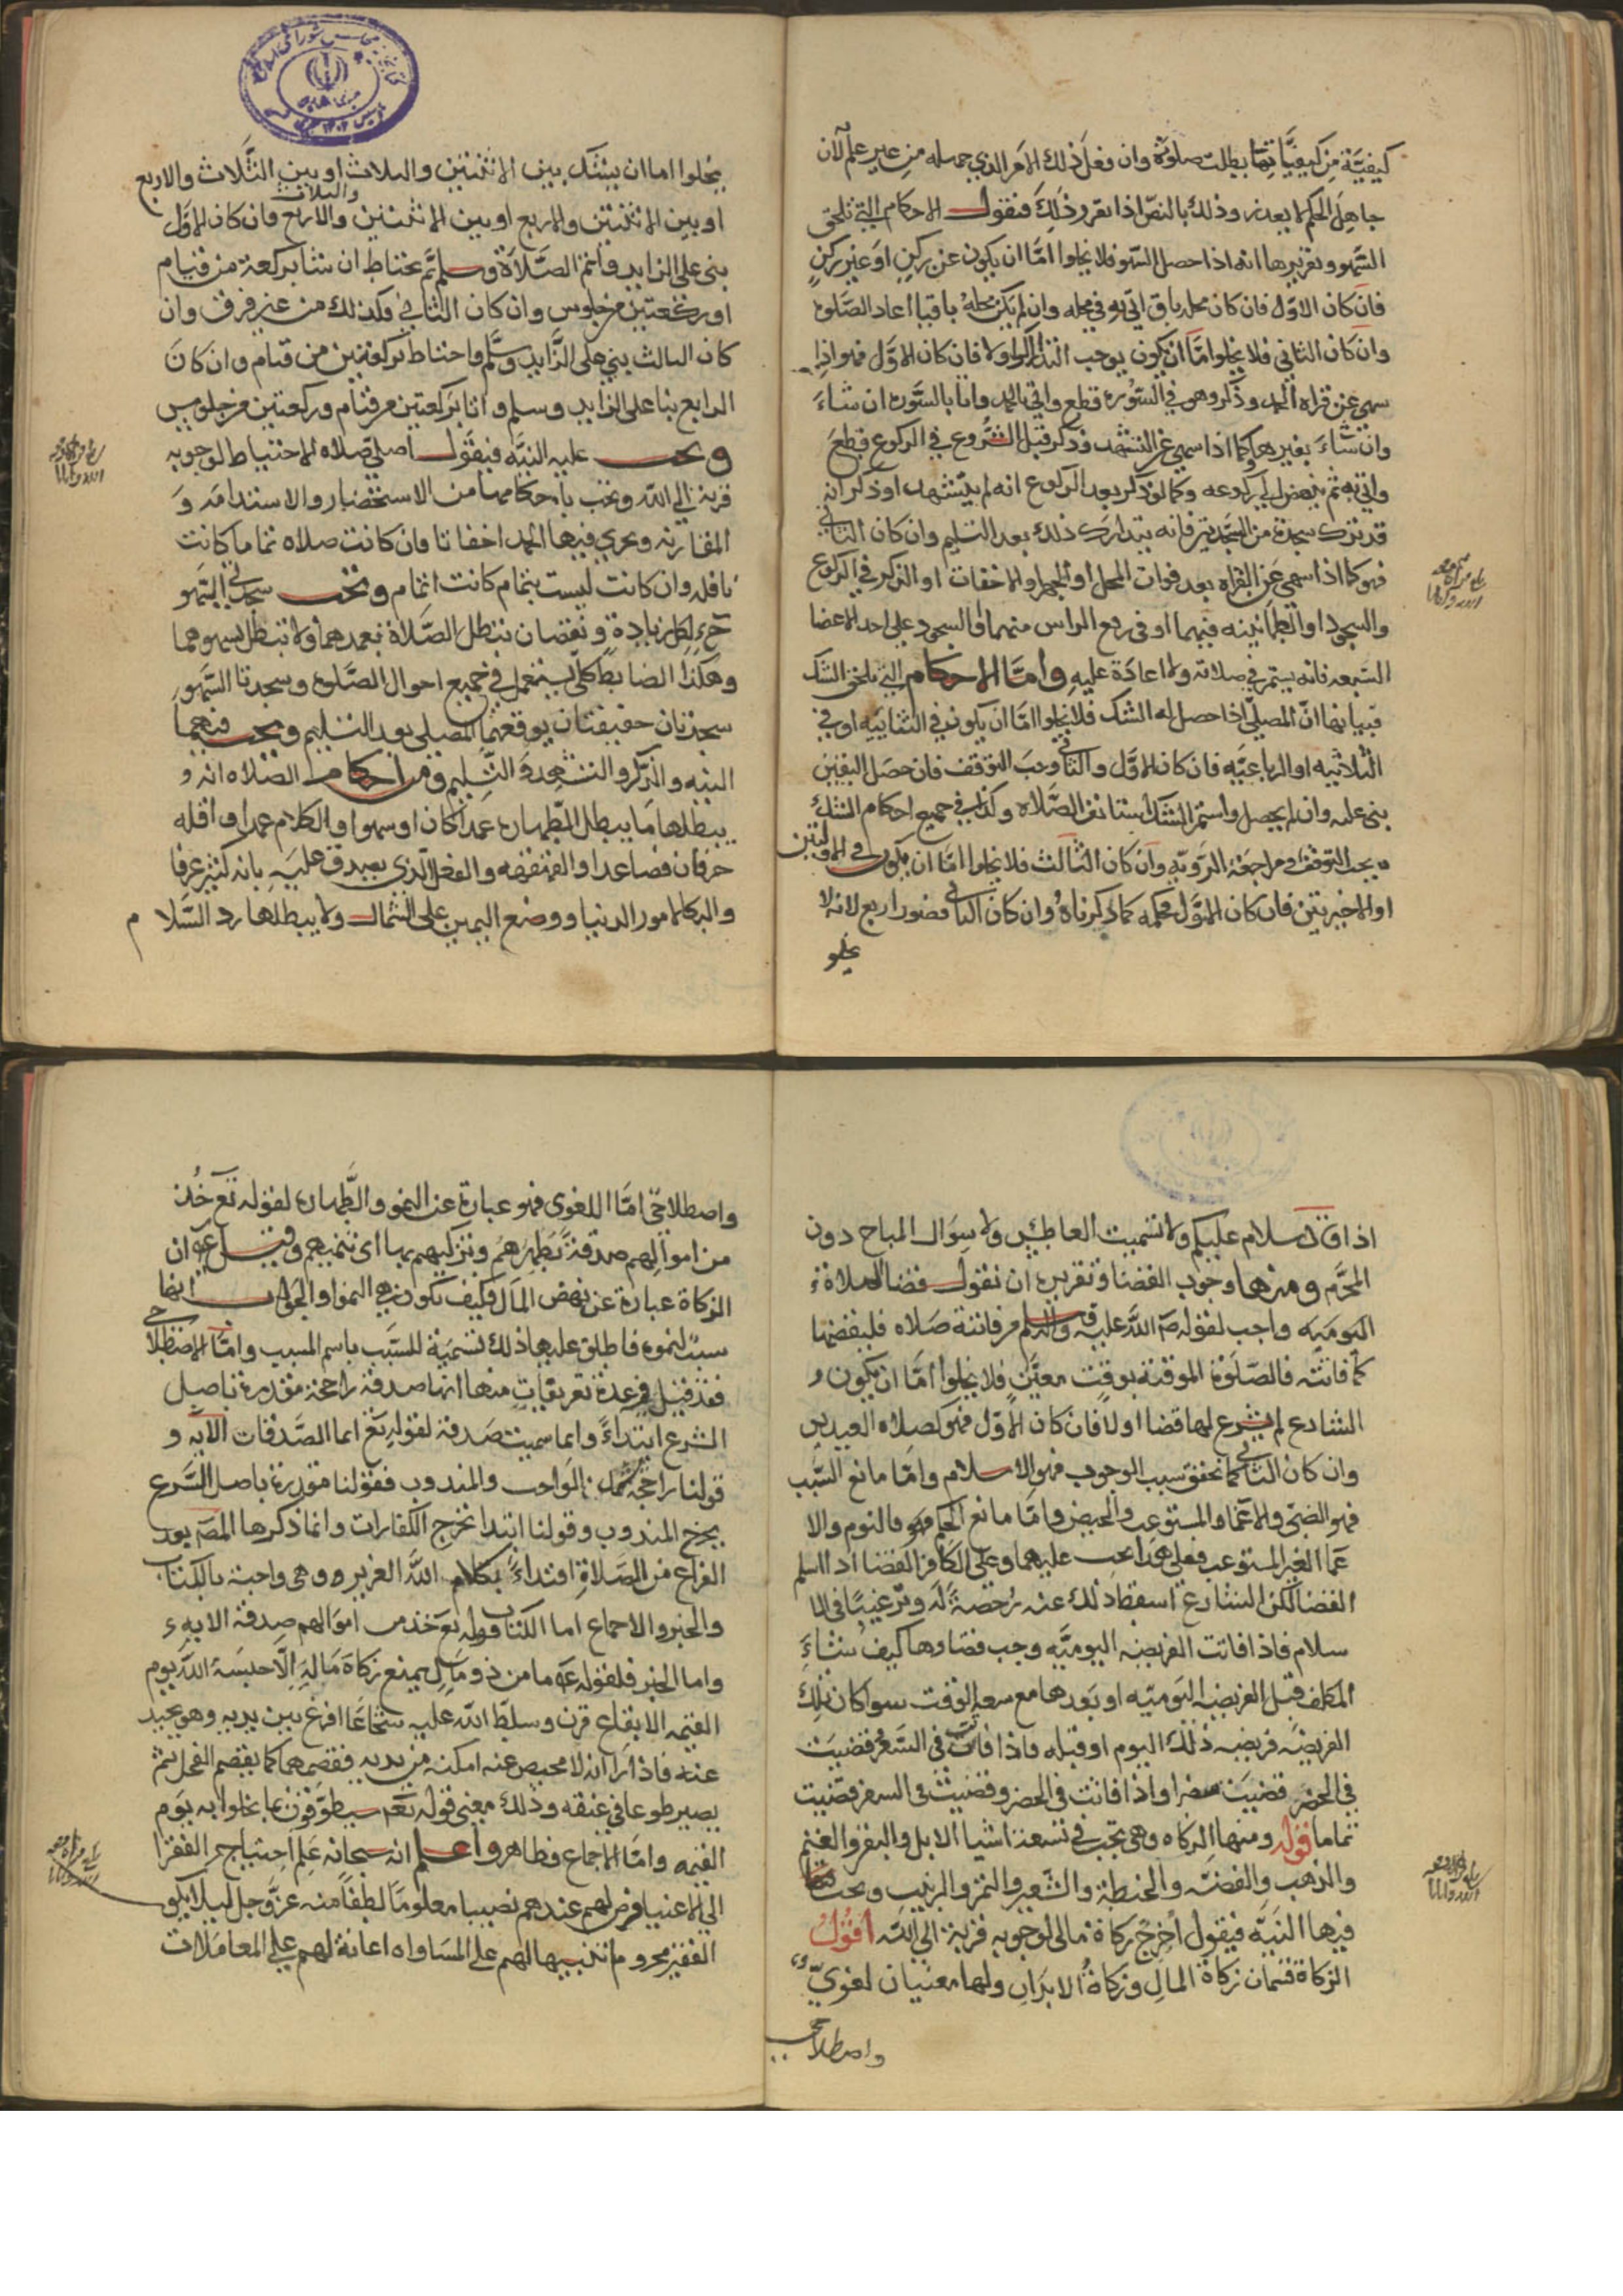 كيفيّة من كيفيّاتها بطلت صلوته وان فعل ذلك الامر الذي جهله من غير علم لان
جاهل الحكم لا يعذر وذلك بالنصّ اذا تقرر ذلك فنقول الاحكام التي تلحق
السّهو وتقريرها انه اذا حصل السّهو فلا يخلوا امّا ان يكون عن ركنٍ او غير ركنٍ
فان كان الاوّل فان كان محله باق اتي به في محله وان لم يكن محلهُ باقيا اعاد الصّلوة
وان كان الثاني فلا يخلوا امّا ان يكون يوجب التدارك او لا فان كان الاوّل فهو اذا
سهي عن قراة الحمد وذكر وهو في السّورة قطع واتي بالحمد واتا بالسّورة ان شاءَ
وان شاءَ بغيرها وكما اذا سهي عن التشهد وذكر قبل الشّروع في الركوع قطعَ
واتي به ثم ينهض الي ركوعه وكما لو ذكر بعد الركوع انه لم يتشهد او ذكر انه
قد ترك سجدة من السّجدتين فانه يتدارك ذلك بعد التسليم وان كان الثاني
فهو كما اذا سهي عن القراة بعد فوات المحل او الجهر او الاخفات او الذكر في الركوع
والسجود او الطمانينه فيهما او في رفع الراس منهما او السجود علي احد الاعضا
السّبعه فانه يستمر في صلاته ولا اعادَة عليهِ وامّا الاحكام التي تلحق الشك
فبيانها انّ المصلّي اذا حصل له الشك فلا يخلوا امّا ان يكون في الثنائيّه او في
الثلاثيه او الرباعيّه فان كان الاوّل والثاني وجبَ التوقف فان حصَل اليقين
بني عليه وان لم يحصل واستمر الشك استانف الصّلاة وكذا في جميع احكام الشك
يجب التوقف ومراجعَة الرّويّه وان كان الثالث فلا يخلوا امّا ان يكون في الاولتين
او الاخيرتين فان كان الاوّل فحكمه كما ذكرناهُ وان كان الثاني فصُور اربع لانه لا
يخلو
يخلوا اما ان يشك بين الاثنتين والثلاث او بين الثّلاث والاربع
او بين الاثنتين والاربع او بين الاثنتين والثلاث والاربع فان كان الاوّل
بني علي الزايد فاتم الصّلاة وسلم ثم يحتاط ان شا بركعة من قيام
او ركعتين من جلوس وان كان الثاني فكذلك من غير فرق وان
كان الثالث بني علي الزّايد وسلّم واحتاط بركعتين من قيام وان كانَ
الرابع بنا علي الزايد وسلم واتا بركعتين من قيام وركعتين من جلوس
ويجب عليه النيّه فيقول اصلي صلاة الاحتياط لوجوبه
قربة الي الله ويجب باحكامها من الاستحضار والاستدامه وَ
المقارنه ويجري فيها الحمد اخفاتا فان كانت صلاة تماما كانت
نافله وان كانت ليست بتمام كانت اتمام ويجب سجدتي السّهو
لكل زيادة ونقصان تبطل الصّلاة بعمدهما ولا تبطل بسهوهما
وهكذا الضابط كلّي يستعمل في جميع احوال الصّلوة وسجدتا السّهو
سجدتان حقيقتان يوقعهما المصلي بعد التسليم ويجب فيهما
النيه والذّكر والتشهد وَالتسليم ومن احكام الصّلاة انه و
يبطلها ما يبطل الطّهارة عمدا كان او سهوا والكلام عمدا واقله
حرفان فصاعدا والقهقهه والفعل الّذي يصدق عليهِ بانه كثير عرفا
والبكا لامور الدنيا ووضع اليمين علي الشمال ولا يبطلها رد السّلام
اذا قال سلام عليكم ولا تشميت العاطس ولا سوَال المباح دون
المحرّم ومنها وجوب القضا وتقريره ان نقول قضا الصلاة
اليوميه واجب لقوله صَ اللّه عليه واله وسلم من فاتته صَلاه فليقضها
كما فاتته فالصّلوة الموقتة بوقتٍ معيّنٍ فلا يخلوا امّا ان يكون و
الشارع لم يشرع لها قضا اولا فان كان الاوّل فهو كصلاه العيدين
وان كان الثاني كما تحقق سبب الوجوب فهو الاسلام وامّا مانع السّبب
فهو الصّبي والاغما والمستوعب والحيض وامّا مانع الحكم فهو فالنوم والا
غما الغير المستوعب فعلي هذا يجب عليهما وعلي الكافر القضا اذا اسلم
القضا لكن الشارع اسقط ذلك عنه رخصَةً لَه وترغيبًا في الا
سلام فاذا فاتت الفريضه اليوميّه وجب قضاوها كيفُ شاءَ
المكلف قبل الفريضه اليَوميّه او بَعدها مع سعه الوقت سوا كان تلك
الفريضَه فريضه ذلك اليوم او قبله فاذا فاتت في السَّفر قضيَت
في الحضَر قضيَت سفرا واذا فاتت في الحضر وقضيت في السفر قضّيت
تماما قوله ومنها الزكاه وهي تجب في تسعة اشيا الابل والبقر والغنم
والذهب والفضّه والحنطة والشّعير والتمر والزبيب ويجب
فيها النيَّه فيقول اُخرِجُ زكاة مالي لوجوبه قربة الي اللّه اقولُ
الزكاة قسمان زكاة المالِ وزكاةُ الابدَان ولها معنيان لغويّ
واصطلاحي
واصطلاحيّ امّا اللغوي فهو عبارة عن النمو والطّهارة لقوله تع خُذ
من اموَالهم صدقةً تطهّرهُم وتزكيهم بها اي تنميهم وقيل ان
الزكاة عبارة عن نهض المَال فكيف تكون هي النموا والجواب انها
سببٌ لنموه فاطلق عليها ذلك تسميَة للسّبَب باسم المسبب وامّا الاصطلاحي
فقد قيل فيه عدة تعريفاتٍ منها انها صدقة راجحة مقدرة باصل
الشرع ابتداءً وانما سميت صَدقة لقوله تع انما الصّدقات الايه و
قولنا راجحة يشمل الوَاجب والمندوب فقولنا مقدرة باصل الشّرع
يخرج المندوب وقولنا ابتدا تخرج الكفارات وانما ذكرها المصَ بعد
الفراغ من الصّلاة اقتداءً بكلام اللّه العزيز وهي واجبة بالكتاب
والخبر والاجماع اما الكتاب قوله تعَ خذ من اموَالهم صدقة الايه
واما الخبر فلقوله عَه ما من ذو مَالٍ يمنع زكاة مَالِهِ اِلّا حبسَهُ اللّه يوم
القيمه الا بقاع قرن وسلّط اللّه عليه شجَاعًا اقرع بين يديه وهو يحيد
عنه فاذا رَا انه لا محيص عنه امكنه من يديه فقضمها كما يقضم الفحل ثم
يصير طوعا في عنقه وذلك معني قوله تعَ سيطوّقون ما بخلوا به يوم
القيمه وامّا الاجماع فظاهر واعلم انه سبحانه عَلِم احتياج الفقرا
الي الاغنيا فرض لهم عندهم نصيبا معلومًا لطفًا منه عزّ وجل ليلا يكون
الفقير محروم ما تنبيها لهم علي المسَاواه اعانة لهم علي المعامَلات